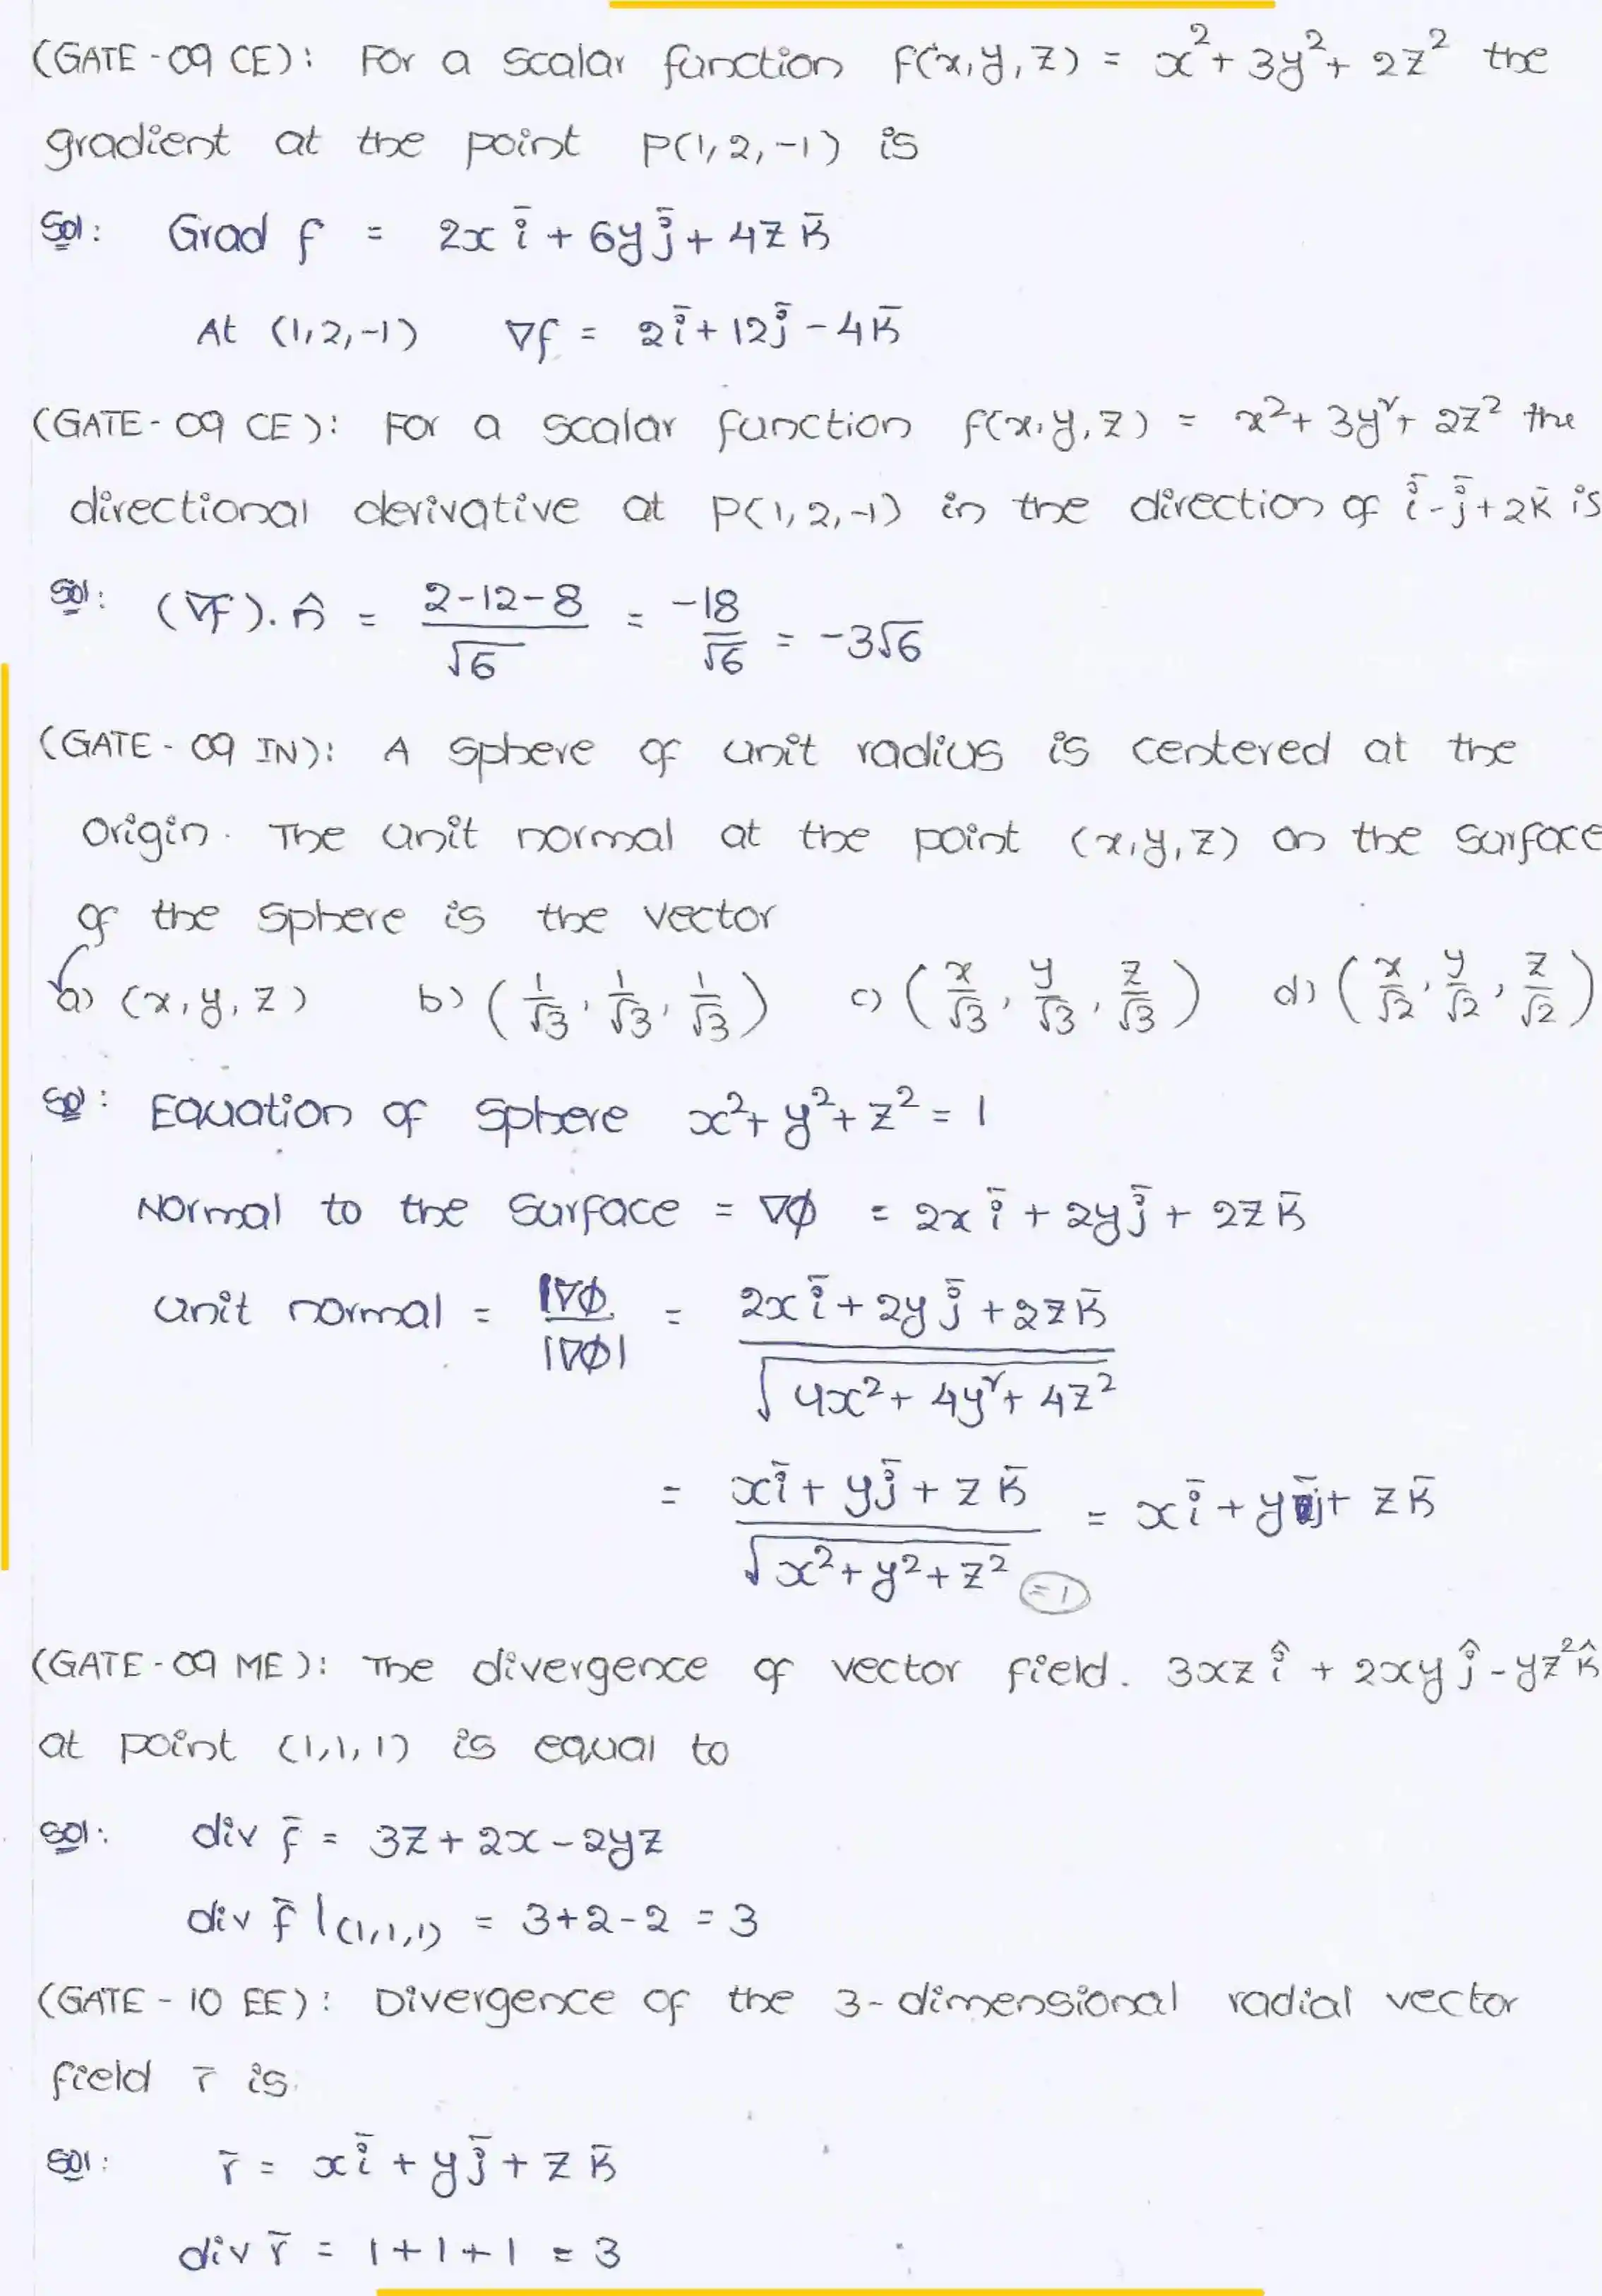 (GATE-09 CE): For a scalar function f(x,y,z) = x²+3y²+2z² the
gradient at the point P(1,2,-1) is
Sol: Grad f = 2x ī + 6y j̄ + 4z k̄
At (1,2,-1) ∇f = 2ī + 12j̄ - 4k̄
(GATE-09 CE): For a scalar function f(x,y,z) = x²+3y²+2z² the
directional derivative at P(1,2,-1) in the direction of ī-j̄+2k̄ is
Sol: (∇f).n̂ = (2-12-8)/√6 = -18/√6 = -3√6
(GATE-09 IN): A sphere of unit radius is centered at the
origin. The unit normal at the point (x,y,z) on the surface
of the sphere is the vector
a) (x,y,z) b) (1/√3, 1/√3, 1/√3) c) (x/√3, y/√3, z/√3) d) (x/√2, y/√2, z/√2)
Sol: Equation of sphere x²+y²+z² = 1
Normal to the surface = ∇φ = 2x ī + 2y j̄ + 2z k̄
unit normal = ∇φ/|∇φ| = (2x ī + 2y j̄ + 2z k̄)/√(4x²+4y²+4z²)
= (xī + yj̄ + z k̄)/√(x²+y²+z²) =1 = xī + yj̄ + z k̄
(GATE-09 ME): The divergence of vector field. 3xz î + 2xy ĵ - yz² k̂
at point (1,1,1) is equal to
Sol: div f̄ = 3z + 2x - 2yz
div f̄ |(1,1,1) = 3+2-2 = 3
(GATE-10 EE): Divergence of the 3-dimensional radial vector
field r̄ is
Sol: r̄ = xī + yj̄ + z k̄
div r̄ = 1+1+1 = 3